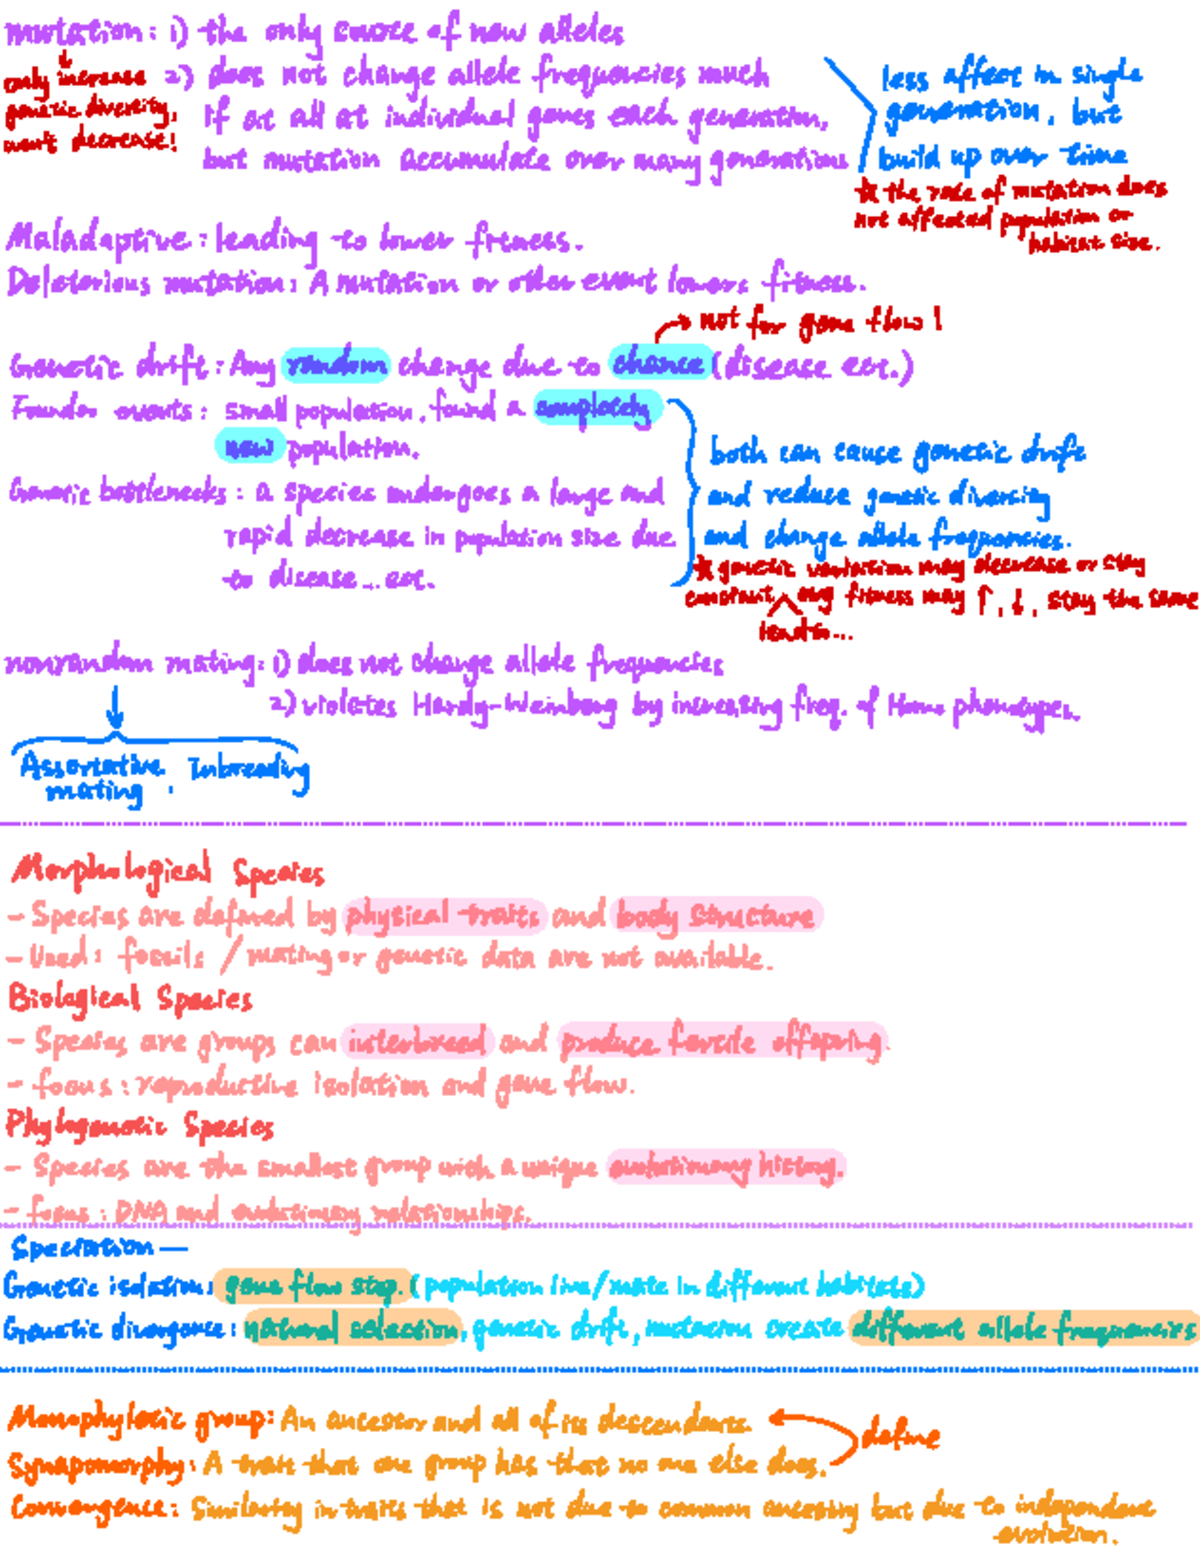 mutation: 1) the only source of new alleles
only increase
genetic diversity,
won't decrease!
2) does not change allele frequencies much
if at all at individual genes each generation,
but mutation accumulate over many generations
less affect in single
generation, but
build up over time
★ the rate of mutation does
not affected population or
habitat size.
Maladaptive: leading to lower fitness.
Deleterious mutation: A mutation or other event lowers fitness.
→ not for gene flow!
Genetic drift: Any random change due to chance (disease ect.)
Founder events: small population, found a completely
new population.
Genetic bottlenecks: a species undergoes a large and
rapid decrease in population size due
to disease... ect.
both can cause genetic drift
and reduce genetic diversity
and change allele frequencies.
★ genetic variation may decrease or stay
constant, avg fitness may ↑, ↓, stay the same
lead to...
nonrandom mating: 1) does not change allele frequencies
2) violates Hardy-Weinberg by increasing freq. of Homo phenotypes.
Assortative mating, Inbreeding
Morphological Species
- Species are defined by physical traits and body structure
- Used: fossils / mating or genetic data are not available.
Biological Species
- Species are groups can interbreed and produce fertile offspring.
- focus: reproductive isolation and gene flow.
Phylogenetic Species
- Species are the smallest group with a unique evolutionary history.
- focus: DNA and evolutionary relationships.
Speciation —
Genetic isolation: gene flow stop. (population live/mate in different habitats)
Genetic divergence: natural selection, genetic drift, mutation create different allele frequencies
Monophyletic group: An ancestor and all of its descendants.
define
Synapomorphy: A trait that one group has that no one else does.
Convergence: Similarity in traits that is not due to common ancestry but due to independent
evolution.